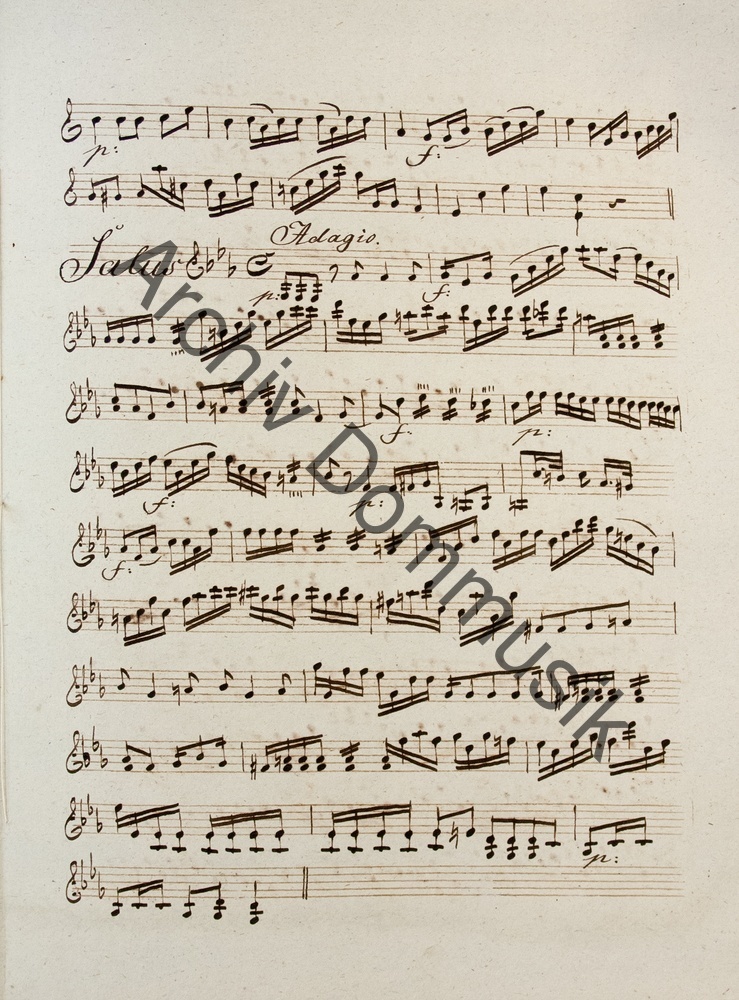 p: f:
Adagio.
Salus
p: f:
f: p:
f: p:
f:
p:
Archiv Dommusik